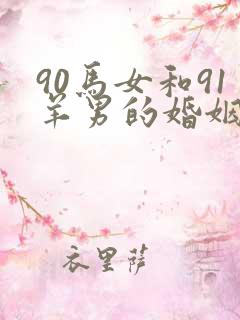 90馬女和91
羊男的婚姻
衣里薩